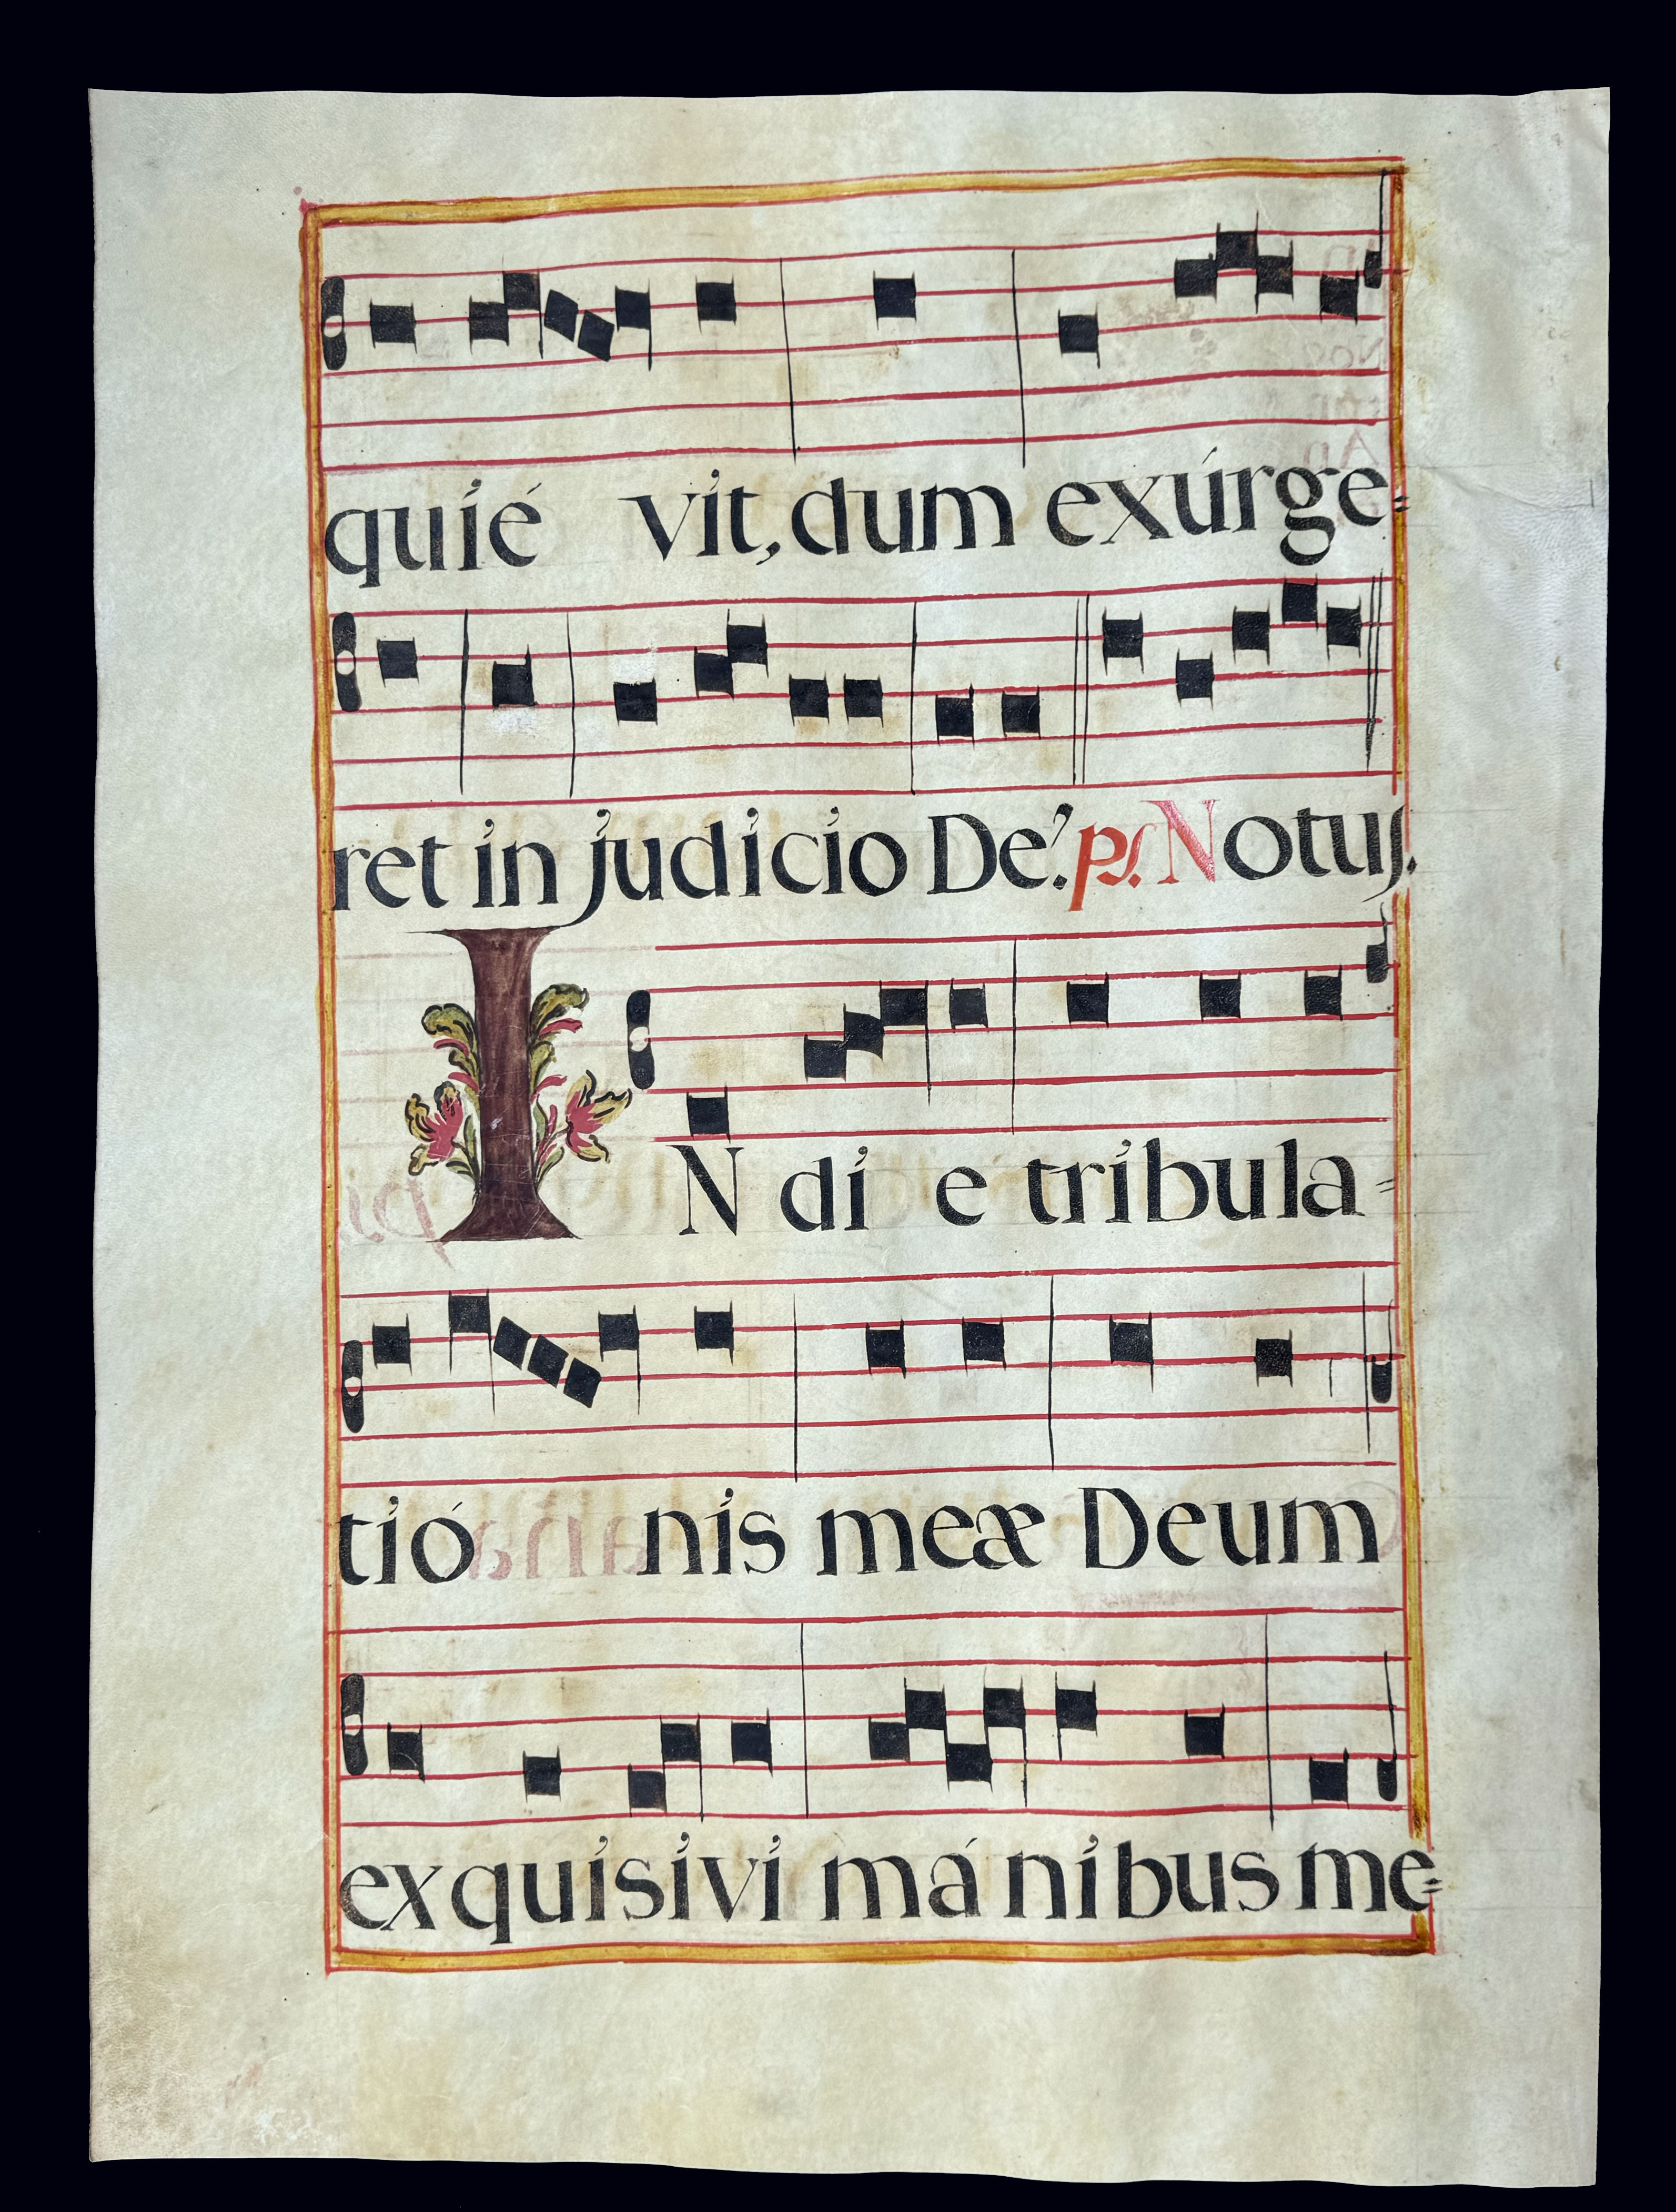 quié vit, dum exúrge=
ret in judicio De.' ps. Notus.
IN di e tribula=
tió nis meæ Deum
exquisivi mánibus me=